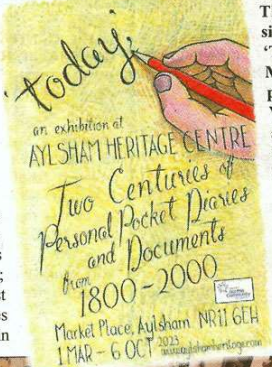 'today,'
an exhibition at
AYLSHAM HERITAGE CENTRE
Two Centuries of
Personal Pocket Diaries
and Documents
from
1800-2000
Market Place, Aylsham. NR11 6EH
1 MAR - 6 OCT 2023
www.aylshamheritage.com